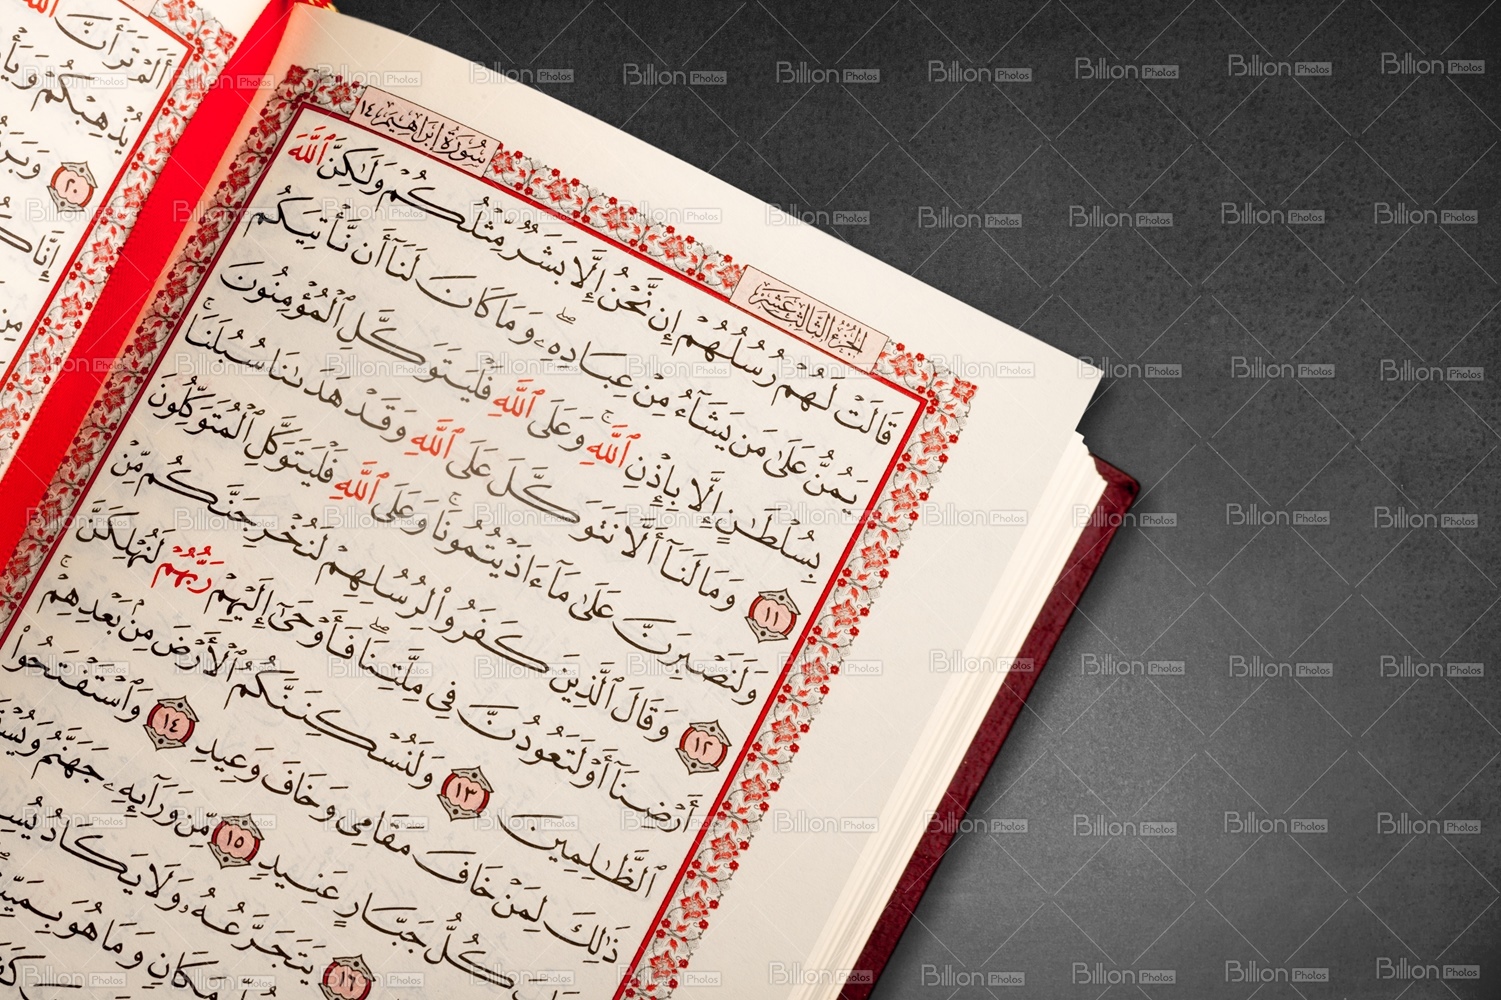 سُورَةُ إِبْرَاهِيمَ ١٤
الجُزْءُ الثَّالِثَ عَشَرَ
قَالَتْ لَهُمْ رُسُلُهُمْ إِن نَّحْنُ إِلَّا بَشَرٌ مِّثْلُكُمْ وَلَٰكِنَّ ٱللَّهَ
يَمُنُّ عَلَىٰ مَن يَشَآءُ مِنْ عِبَادِهِۦ ۖ وَمَا كَانَ لَنَآ أَن نَّأْتِيَكُم
بِسُلْطَٰنٍ إِلَّا بِإِذْنِ ٱللَّهِ ۚ وَعَلَى ٱللَّهِ فَلْيَتَوَكَّلِ ٱلْمُؤْمِنُونَ
١١ وَمَا لَنَآ أَلَّا نَتَوَكَّلَ عَلَى ٱللَّهِ وَقَدْ هَدَىٰنَا سُبُلَنَا ۚ
وَلَنَصْبِرَنَّ عَلَىٰ مَآ ءَاذَيْتُمُونَا ۚ وَعَلَى ٱللَّهِ فَلْيَتَوَكَّلِ ٱلْمُتَوَكِّلُونَ
١٢ وَقَالَ ٱلَّذِينَ كَفَرُوا۟ لِرُسُلِهِمْ لَنُخْرِجَنَّكُم مِّنْ
أَرْضِنَآ أَوْ لَتَعُودُنَّ فِى مِلَّتِنَا ۖ فَأَوْحَىٰٓ إِلَيْهِمْ رَبُّهُمْ لَنُهْلِكَنَّ
ٱلظَّٰلِمِينَ ١٣ وَلَنُسْكِنَنَّكُمُ ٱلْأَرْضَ مِنۢ بَعْدِهِمْ ۚ
ذَٰلِكَ لِمَنْ خَافَ مَقَامِى وَخَافَ وَعِيدِ ١٤ وَٱسْتَفْتَحُوا۟
كُلُّ جَبَّارٍ عَنِيدٍ ١٥ مِّن وَرَآئِهِۦ جَهَنَّمُ
يَتَجَرَّعُهُۥ وَلَا يَكَادُ
مَكَانٍ وَمَا هُوَ بِمَيِّتٍ
١٦
أَلَمْ تَرَ أَنَّ
يُذْهِبْكُمْ
٢٠
Billion Photos